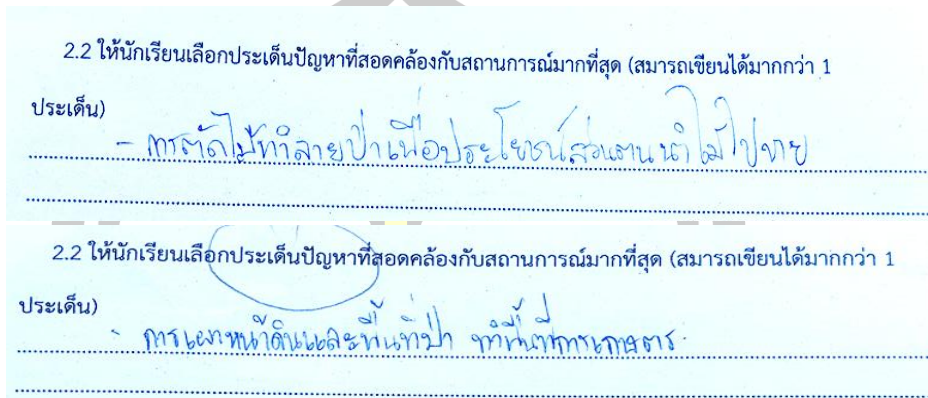 2.2 ให้นักเรียนเลือกประเด็นปัญหาที่สอดคล้องกับสถานการณ์มากที่สุด (สมารถเขียนได้มากกว่า 1
ประเด็น)
- การตัดไม้ทำลายป่าเพื่อประโยชน์ส่วนตนนำไม้ไปขาย
2.2 ให้นักเรียนเลือกประเด็นปัญหาที่สอดคล้องกับสถานการณ์มากที่สุด (สมารถเขียนได้มากกว่า 1
ประเด็น)
- การเผาหน้าดินและพื้นที่ป่า ทำพื้นที่การเกษตร